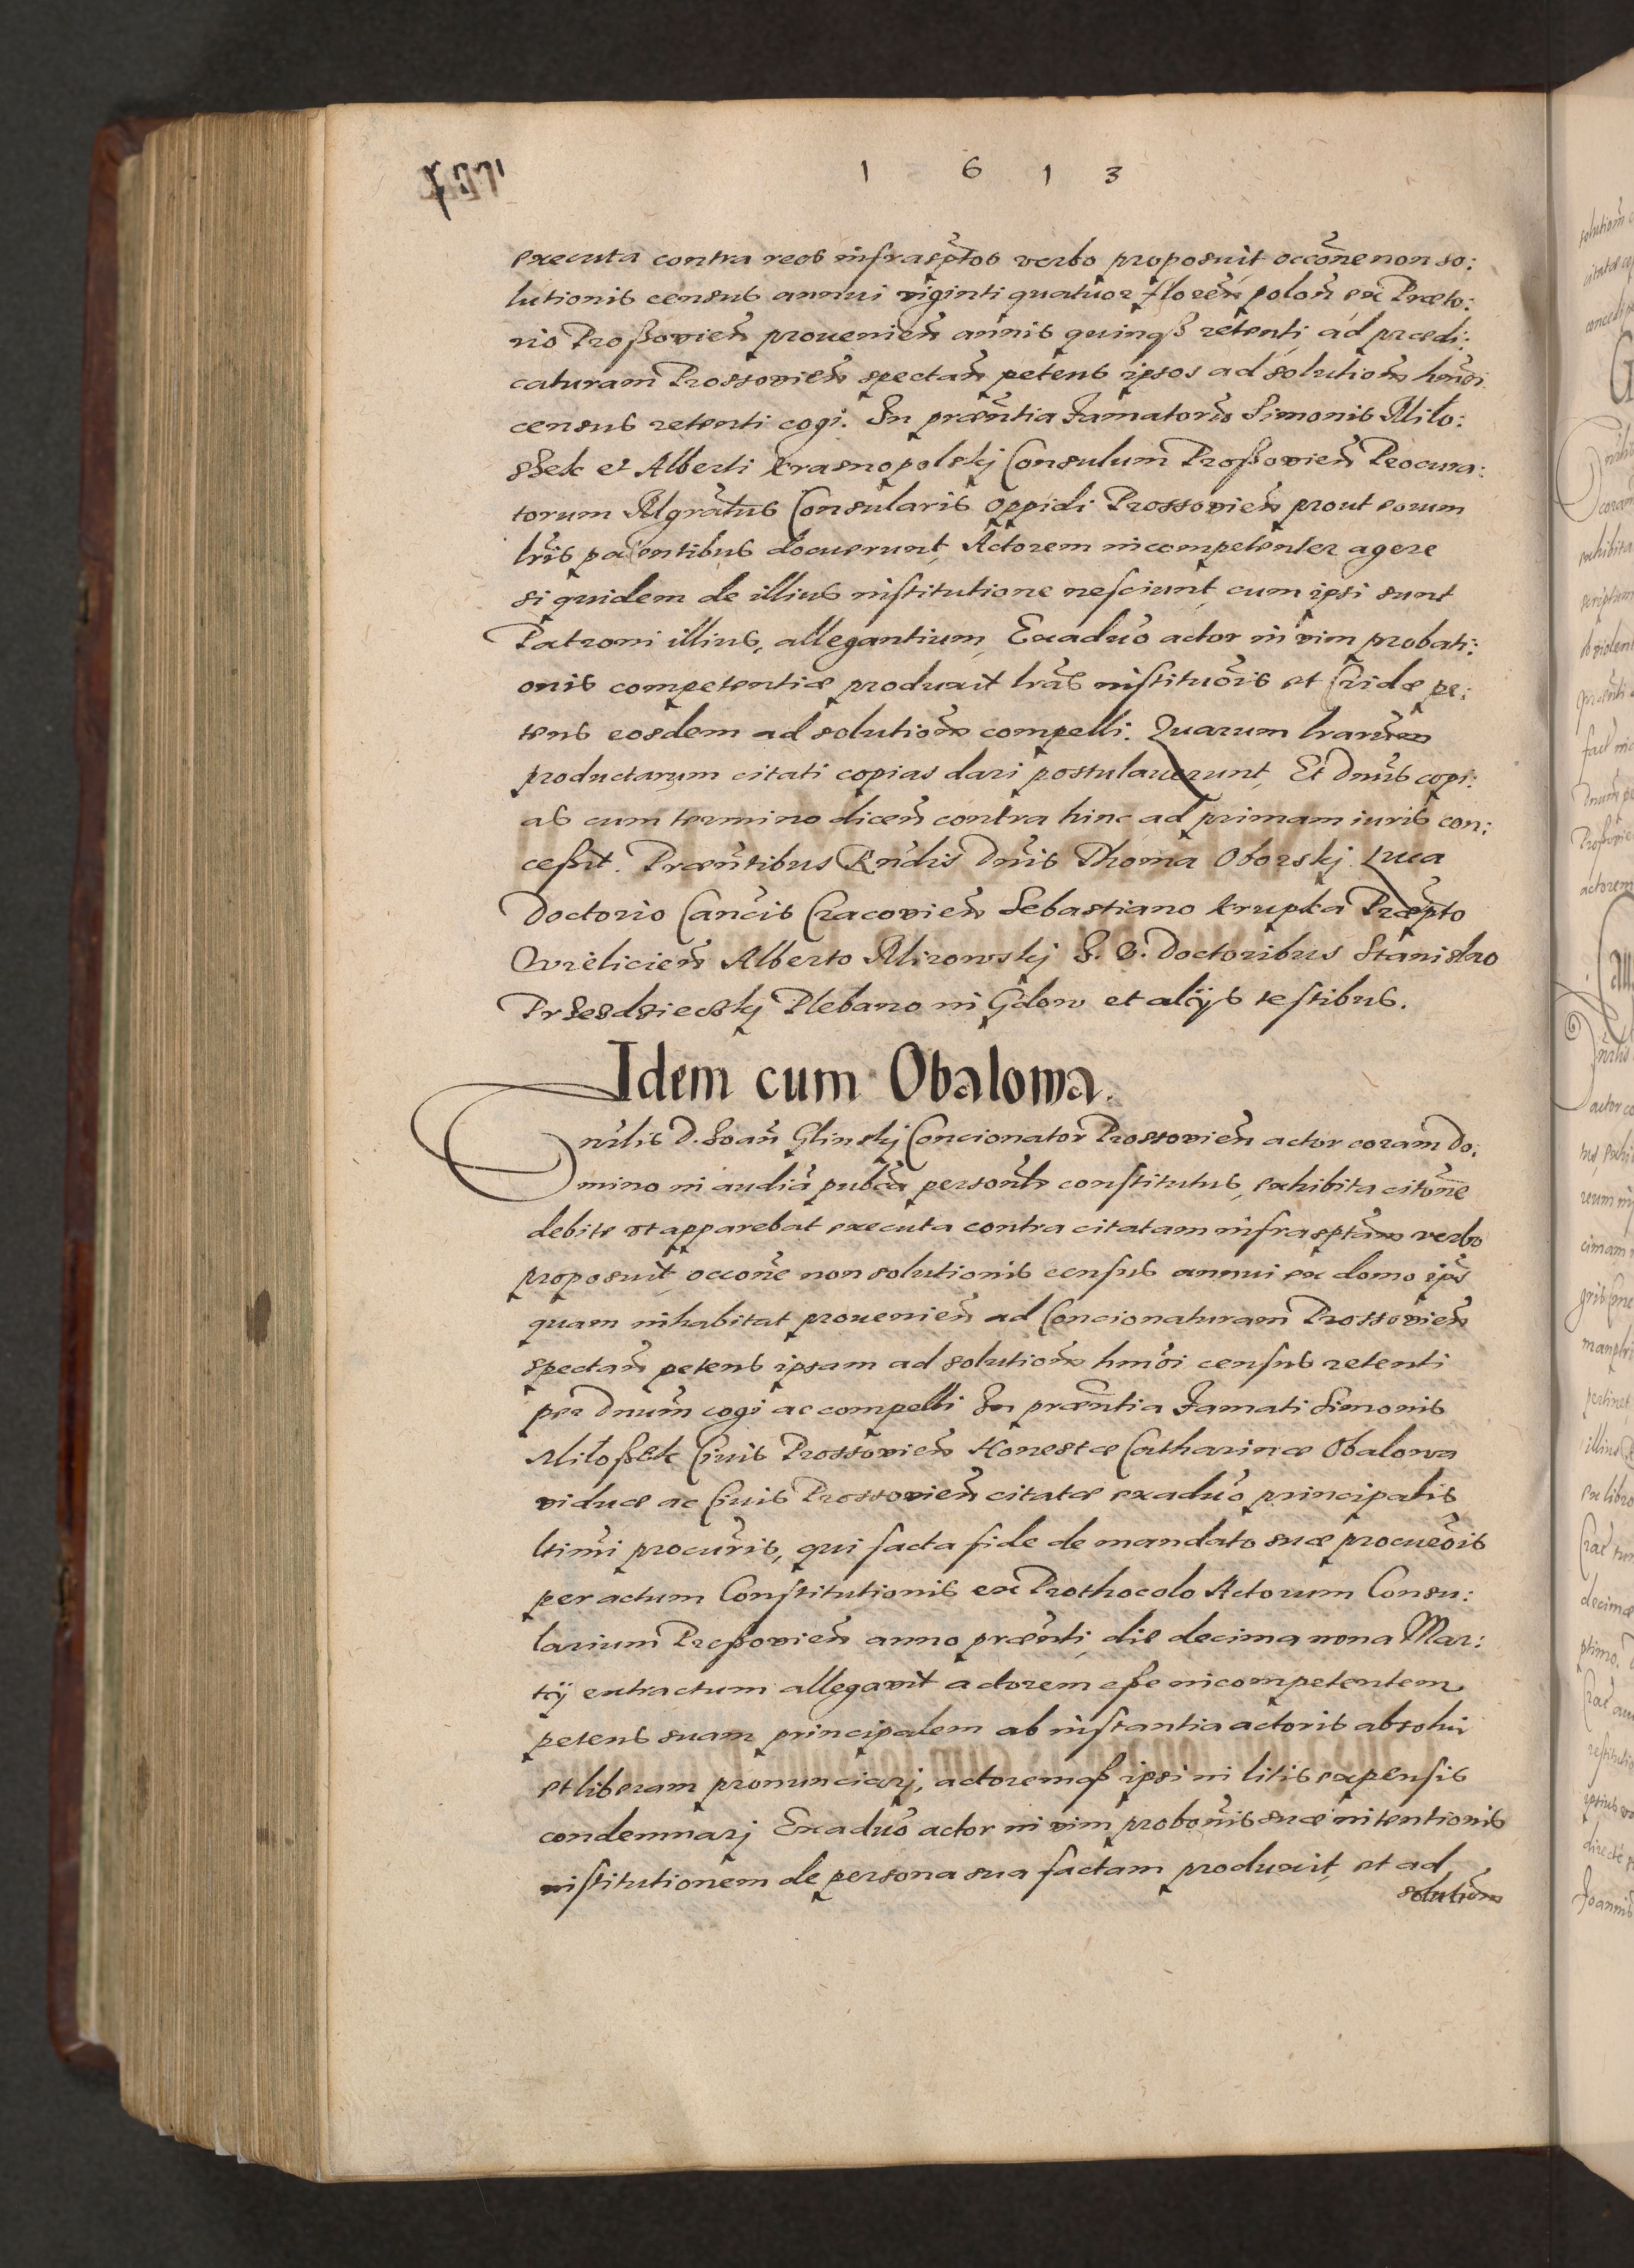 1 6 1 3
executa contra reos infrasptos verbo proposuit occone non so:
lutionis census annui viginti quatuor floren polon ex Præto:
rio Proßovien prouenien annis quinqß retenti ad prædi:
caturam Prossovien spectan petens ipsos ad solutionem hmoi
census retenti cogi. In præntia Famatorum Simonis Miło:
szek et Alberti Krasnopolskj Consulum Proßovien Procura:
torum Mgratus Consularis oppidi Prossovien prout eorum
lris patentibus docuerunt Actorem incompetenter agere
si quidem de illius institutione nesciunt cum ipsi sunt
Patroni illius, allegantium, Exaduo actor in vim probati:
onis competentiæ produxit lras institucois et Cridæ pe:
tens eosdem ad solutionem compelli. Quarum lrarum
productarum citati copias dari postulauerunt, Et Dnus copi:
as cum termino dicen contra hinc ad primam iuris con:
ceßit. Præntibus Rndis Dnis Thoma Oborskj Luca
Doctorio Cancis Cracovien Sebastiano Krupka Præpto
Wielicien Alberto Mirowskj J. V. Doctoribus Stanislao
Przedzieckj Plebano in Gdow et alijs testibus.
Idem cum Obalowa.
nrlis D. Joan Glinskj Concionator Prossovien actor coram Do:
mino in audia publca personlr constitutus, exhibita citone
debite vt apparebat executa contra citatam infrasptam verbo
proposuit occone non solutionis census annui ex domo ipius
quam inhabitat prouenien ad Concionaturam Prossovien
spectan petens ipsam ad solutionem hmoi census retenti
per Dnum cogi ac compelli In præntia Famati Simonis
Miłoßek Ciuis Prossovien Honestæ Catharinæ Obalowa
viduæ ac Ciuis Prossovien citatæ exaduo principalis
ltimi procuris, qui facta fide de mandato suæ procurcois
per actum Constitutionis ex Prothocolo Actorum Consu:
larium Proßovien anno prænti die decima nona Mar:
tij extractum allegavit actorem eße incompetentem
petens suam principalem ab instantia actoris absolui
et liberam pronunciarj, actoremqß ipsi in litis expensis
condemnarj Exaduo actor in vim probonis suæ intentionis
institutionem de persona sua factam produxit, et ad
solutionem